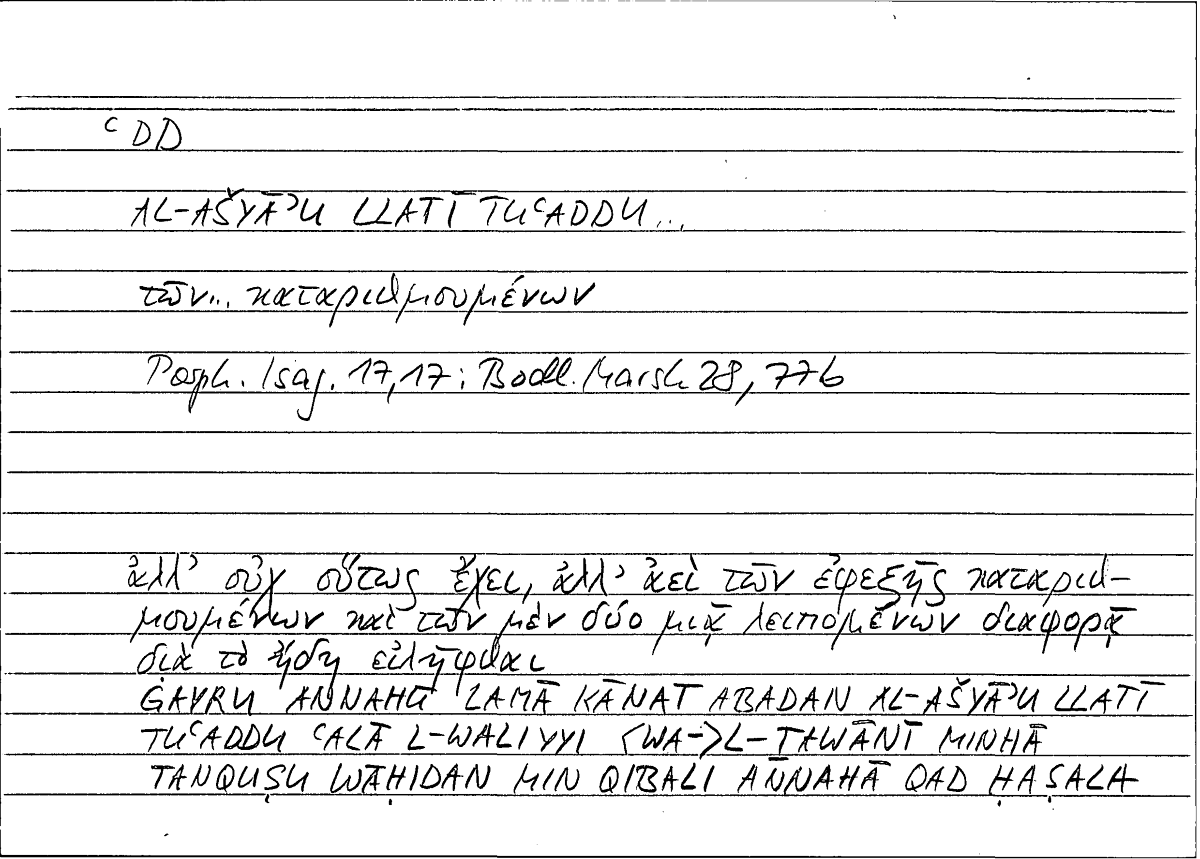 ʿDD
AL-AŠYĀʾU LLATĪ TUʿADDU...
τῶν... καταριθμουμένων
Porph. Isag. 17,17: Bodl. Marsh 28, 77b
ἀλλ᾽ οὐχ οὕτως ἔχει, ἀλλ᾽ ἀεὶ τῶν ἐφεξῆς καταριθ-
μουμένων καὶ τῶν μὲν δύο μιᾷ λειπομένων διαφορᾷ
διὰ τὸ ἤδη εἰλῆφθαι
ĠAYRU ANNAHŪ LAMĀ KĀNAT ABADAN AL-AŠYĀʾU LLATĪ
TUʿADDU ʿALĀ L-WALIYYI ⟨WA-⟩L-TAWĀNĪ MINHĀ
TANQUṢU WĀḤIDAN MIN QIBALI ANNAHĀ QAD ḤAṢALA